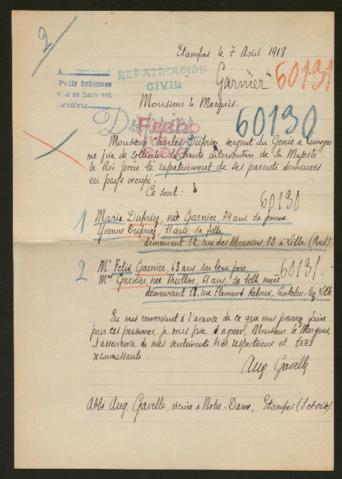 2
Etampes le 7 Août 1918
REPATRIACIÓN
CIVIL
Garnier
60131
Monsieur le Marquis.
60130
Monsieur Charles Dufriez, sergent du Génie à
me prie de solliciter la haute intervention de Sa Majesté
le Roi pour le rapatriement de ses parents demeurés
en pays occupé.
Ce sont:
60130
1 Marie Dufriez, née Garnier, 34 ans, sa femme
Yvonne Dufriez, 11 ans, sa fille
demeurant 32, rue des 32 à Lille (Nord)
60131
2 Mr Félix Garnier, 63 ans, son beau père
Mme Garnier, née 61 ans, sa belle mère
demeurant 18, rue Clément Lille
En vous remerciant à l'avance de ce que vous pourrez faire
pour ces personnes, je vous prie d'agréer, Monsieur le Marquis,
l'assurance de mes sentiments très respectueux et très
reconnaissants.
Aug. Gavelle
Abbé Aug. Gavelle, vicaire à Notre-Dame, Etampes (S-et-Oise)